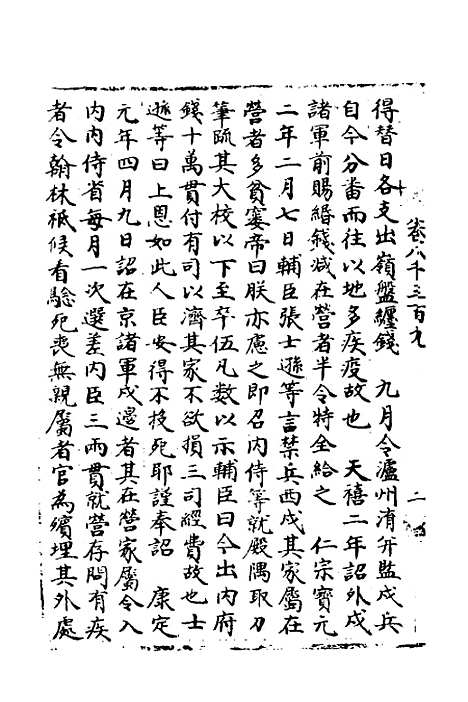 卷八千三百九
二
得替日各支出嶺盤纏錢　九月令瀘州淯井監戍兵
自今分番而往以地多疾疫故也　天禧二年詔外戍
諸軍前賜緡錢減在營者半令特全給之　仁宗寶元
二年二月七日輔臣張士遜等言禁兵西戍其家屬在
營者多貧窶帝曰朕亦慮之即召內侍等就殿隅取刀
筆疏其大校以下至卒伍凡數以示輔臣曰今出內府
錢十萬貫付有司以濟其家不欲損三司經費故也士
遜等曰上恩如此人臣安得不投死耶謹奉詔　康定
元年四月九日詔在京諸軍戍邊者其在營家屬令入
內內侍省每月一次選差內臣三兩貫就營存問有疾
者令翰林祗候看驗死喪無親屬者官為殯埋其外處